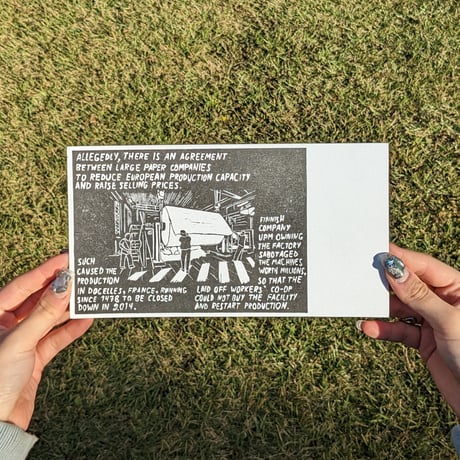 ALLEGEDLY, THERE IS AN AGREEMENT
BETWEEN LARGE PAPER COMPANIES
TO REDUCE EUROPEAN PRODUCTION CAPACITY
AND RAISE SELLING PRICES.
SUCH
CAUSED THE
PRODUCTION
IN DOCELLES, FRANCE, RUNNING
SINCE 1478 TO BE CLOSED
DOWN IN 2014.
FINNISH
COMPANY
UPM OWNING
THE FACTORY
SABOTAGED
THE MACHINES
WORTH MILLIONS,
SO THAT THE
LAID OFF WORKERS' CO-OP
COULD NOT BUY THE FACILITY
AND RESTART PRODUCTION.